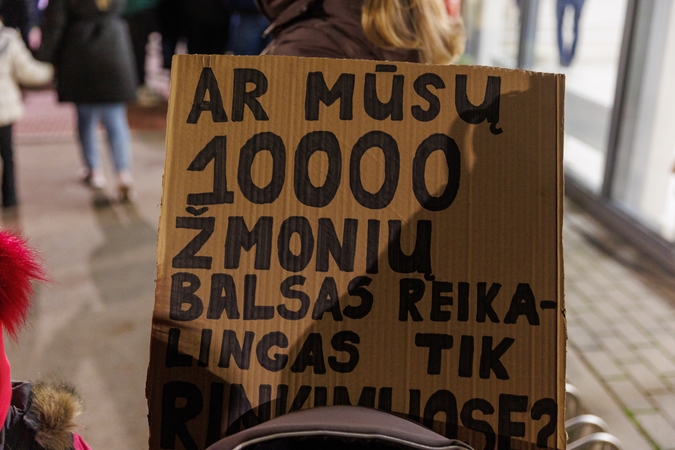 AR MŪSŲ
10000
ŽMONIŲ
BALSAS REIKA-
LINGAS TIK
RINKIMUOSE?